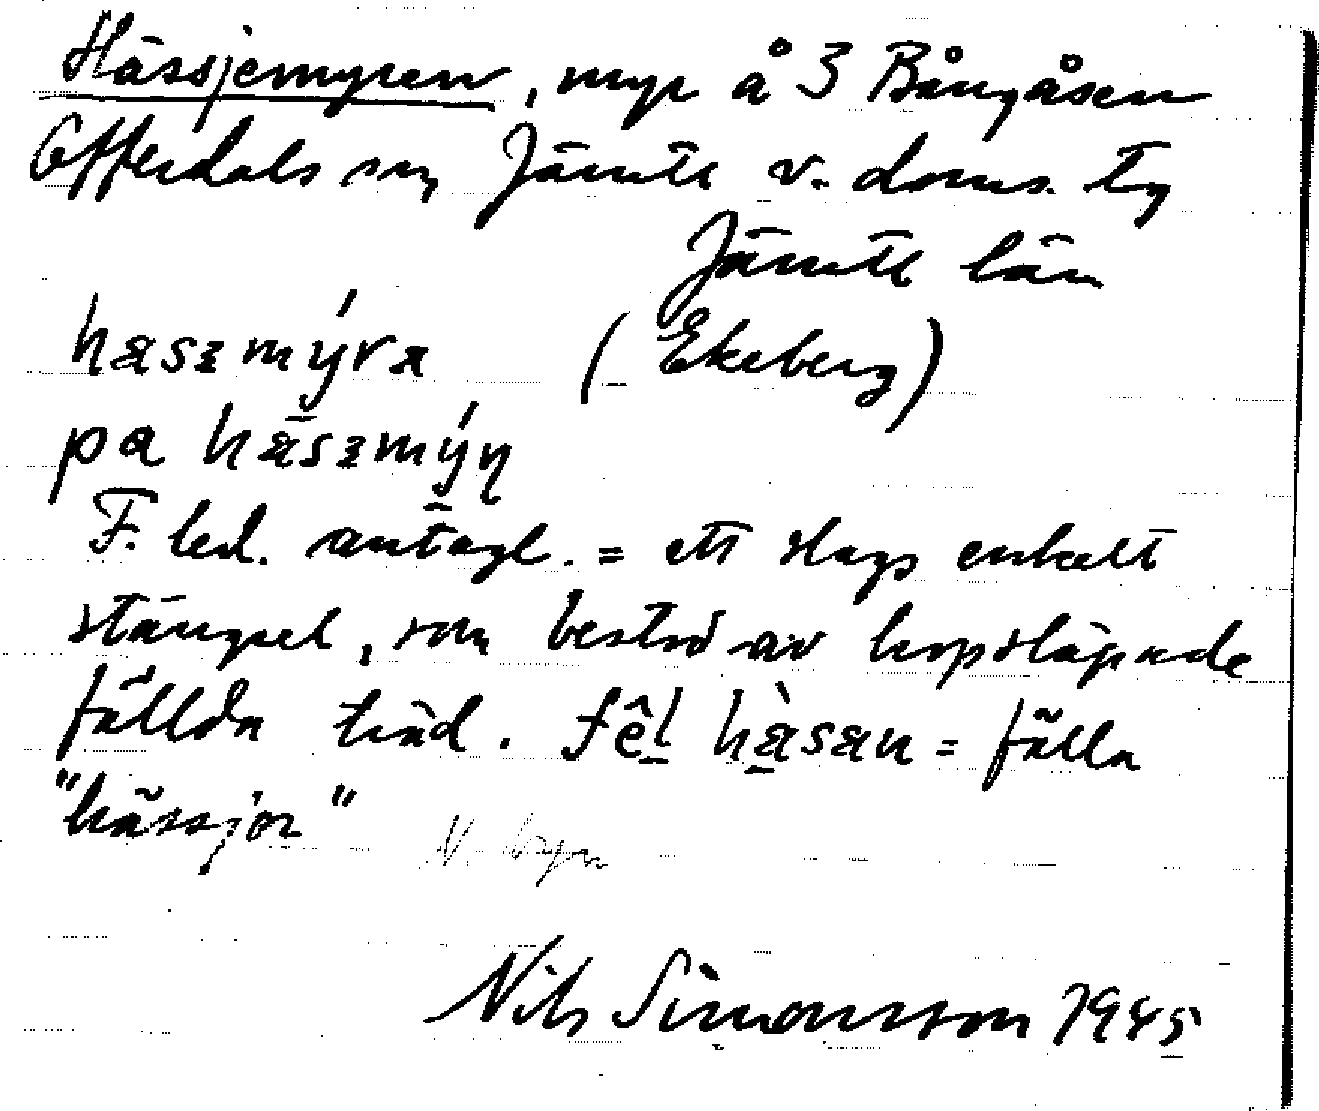 Hässjemyren, myr å 3 Bångåsen
Offerdals sn, Jämtl v. doms. tg
Jämtl län
hæsɜmýra (Ekeberg)
pa hæ̱sɜmýn
F. led. antagl. = ett slags enkelt
stängsel, som bestod av hopsläpade
fällda träd. fêl hæ̱̀sæn = fälla
"hässjor"
Nils Simonsson 1945